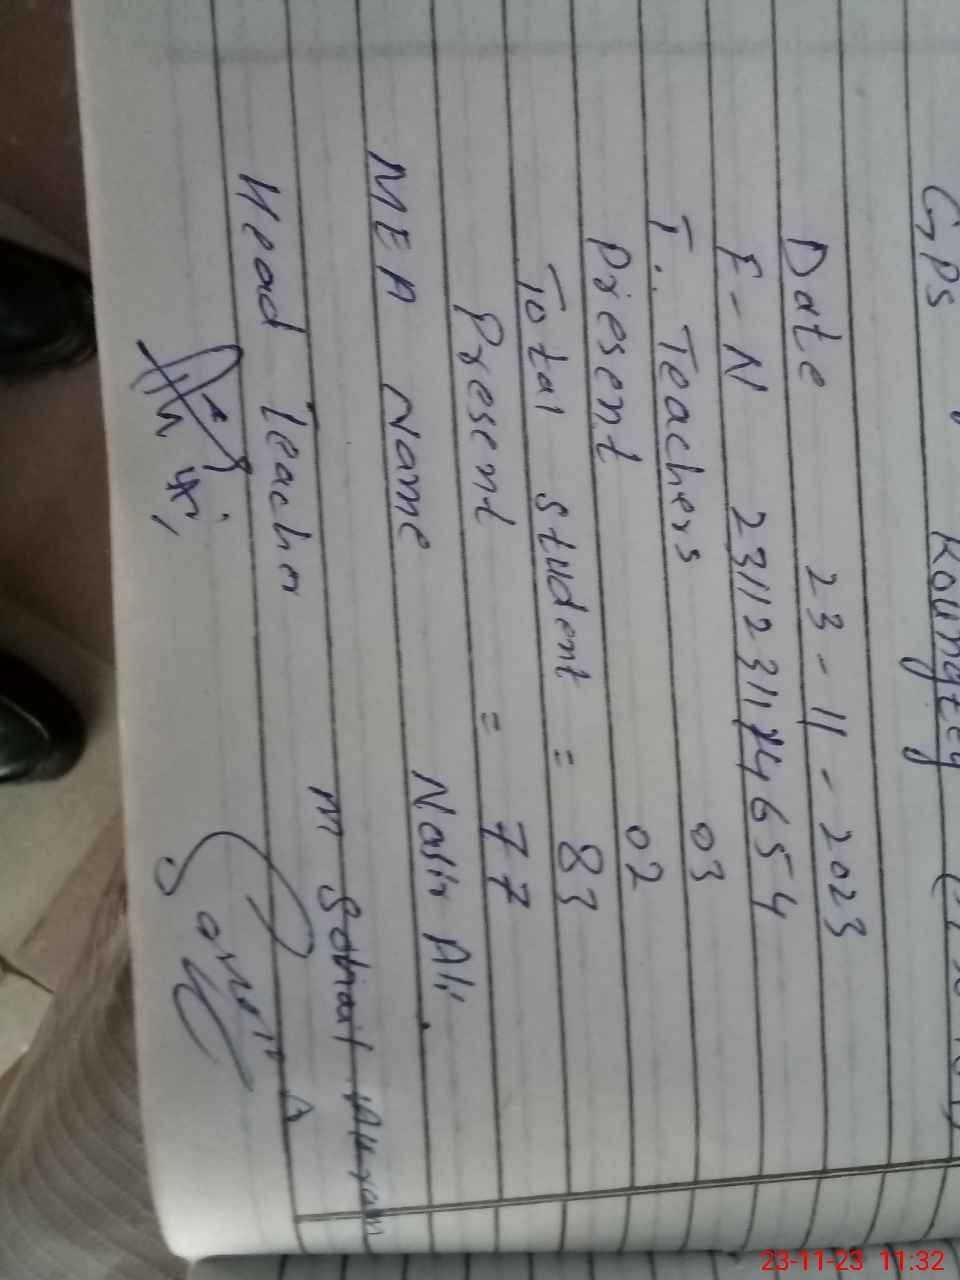 GPS Koungtey
Date 23-11-2023
F-N 2311231114654
T. Teachers 03
Present 02
Total student = 83
Present = 77
MEA Name Nasir Ali.
Head Teacher M
23-11-23 11:32